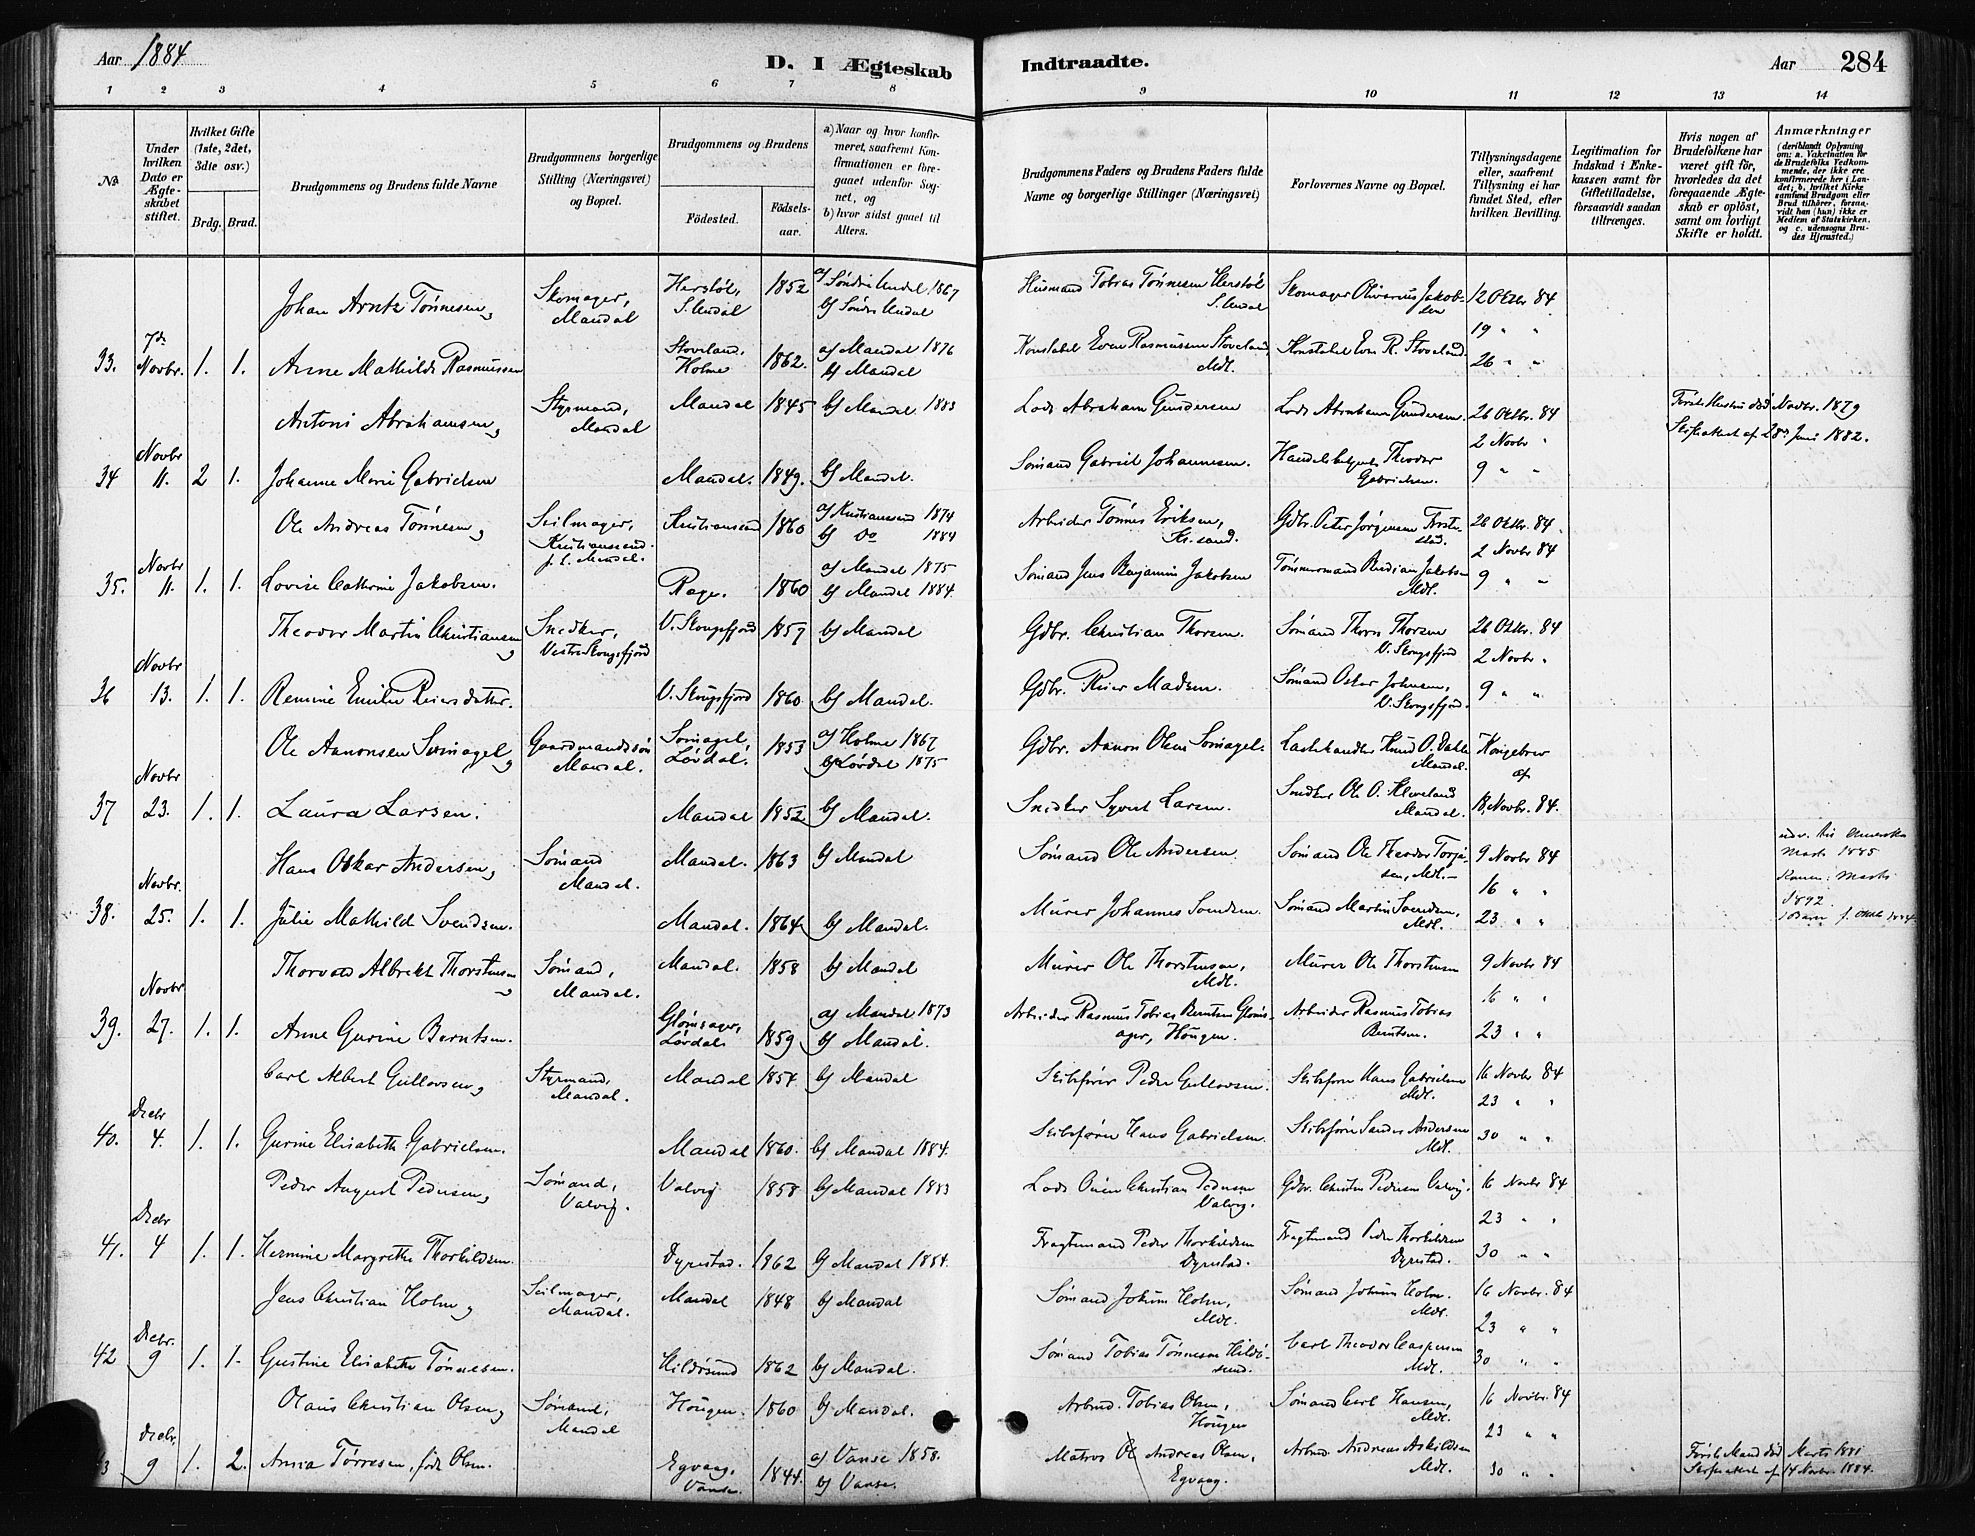 Aar 1884 D. I Ægteskab Indtraadte. Aar 284
1 2 3 4 5 6 7 8 9 10 11 12 13 14
No.
Under hvilken Dato er Ægteskabet stiftet.
Hvilket Gifte (1ste, 2det, 3die osv.)
Brdg. Brud.
Brudgommens og Brudens fulde Navne
Brudgommens borgerlige Stilling (Næringsvei) og Bopæl.
Brudgommens og Brudens
Fødested.
Fødselsaar.
a) Naar og hvor konfirmeret, saafremt Konfirmationen er foregaaet udenfor Sognet, og
b) hvor sidst gaaet til Alters.
Brudgommens Faders og Brudens Faders fulde Navne og borgerlige Stillinger (Næringsvei)
Forlovernes Navne og Bopæl.
Tillysningsdagene eller, saafremt Tillysning ei har fundet Sted, efter hvilken Bevilling.
Legitimation for Indskud i Enkekassen samt for Giftetilladelse, forsaavidt saadan tiltrænges.
Hvis nogen af Brudefolkene har været gift før, hvorledes da det foregaaende Ægteskab er opløst, samt om lovligt Skifte er holdt.
Anmærkninger (deriblandt Oplysning om: a. Vakcination for de Brudefolks Vedkommende, der ikke ere konfirmerede her i Landet; b. hvilket Kirkesamfund Brudgom eller Brud tilhører, forsaavidt han (hun) ikke er Medlem af Statskirken, og c. udensogns Brudes Hjemsted.)
Johan Arntz Tønnesen, Skomager, Mandal Herstøl, S. Undal 1852 a) Søndre Undal 1867 b) Søndre Undal Husmand Tobias Tønnesen Herstøl S. Undal Skomager Oliverius Jakobsen 12 Oktbr 84
19 " "
33. 7de Novbr. 1. 1. Anne Mathilde Rasmussen Stoveland, Holme 1862. a) Mandal 1876 b) Mandal Konstabel Even Rasmussen Stoveland Mdl. Konstabel Even R. Stoveland 26 " "
Antoni Abrahamsen, Styrmand, Mandal Mandal 1845 b) Mandal 1883 Lods Abraham Gundersen Lods Abraham Gundersen 26 Oktbr. 84 Første Hustru død Novbr. 1879
2 Novbr " Skifteattest af 28de Juni 1882.
34 Novbr 11. 2 1. Johanne Marie Gabrielsen Mandal. 1849. b) Mandal. Sømand Gabriel Johannesen. Handelsbetjent Theodor Gabrielsen. 9 " "
Ole Andreas Tønnesen, Seilmager, Kristianssand f. t. Mandal. Kristianssand 1860 a) Kristianssand 1874 b) do 1884 Arbeider Tønnes Eriksen, Kr.sand. Gdbr. Peter Jørgensen 26 Oktbr. 84.
2 Novbr 84
35. Novbr 11. 1. 1. Lovise Cathrine Jakobsen. Rage. 1860 a) Mandal 1875 b) Mandal 1884 Sømand Jens Benjamin Jakobsen Tømmermand Jakobsen Mdl. 9 " "
Theodor Martin Christiansen, Snedker, Vestre Skongsfjord V. Skongsfjord 1857 b) Mandal Gdbr. Christian Thorsen. Sømand Thorn Thorsen V. Skogsfjord 26 Oktbr. 84
2 Novbr "
36 Novbr 13. 1. 1. Remine Emilie Reiersdatter. V. Skogsfjord 1860 b) Mandal. Gdbr. Reier Madsen. Sømand Oskar Johnsen, V. Skogsfjord. 9 " "
Ole Aanonsen Sømagel, Gaardmandssøn Mandal. Sømagel, Løvdal. 1853 a) Holme 1867 b) Løvdal 1875 Gdbr. Aanon Olsen Sømagel. Knud O. Dahle Mandal. Kongebrev af
37 Novbr 23. 1. 1. Laura Larsen. Mandal 1852 b) Mandal. Snedker Syvert Larsen. Snedker Ole O. Kleveland Mandal. 18 Novbr. 84.
Hans Oskar Andersen, Sømand Mandal. Mandal. 1863 b) Mandal Sømand Ole Andersen Sømand Ole Theodor Torjusen, Mdl. 9 Novbr 84 udv. til Amerika Marts 1885
16 " " Konen: Marts
38. Novbr. 25. 1. 1. Julie Mathilde Svendsen. Mandal. 1864 b) Mandal. Murer Johannes Svendsen. Sømand Martin Svendsen, Mdl. 23 " " 1892.
1 Barn f. Oktb. 1884
Thorvald Albrekt Thorstensen, Sømand, Mandal. Mandal. 1858 b) Mandal Murer Ole Thorstensen, Mdl. Murer Ole Thorstensen 9 Novbr 84
16 " "
39. Novbr 27. 1. 1. Anne Gurine Berntsen. Glømsager, Løvdal 1859 a) Mandal 1873 b) Mandal. Arbeider Rasmus Tobias Berntsen Glømsager, Hougen. Arbeider Rasmus Tobias Berntsen. 23 " "
Carl Albert Gullovsen, Styrmand, Mandal. Mandal 1854 b) Mandal Skibsfører Peder Gullovsen. Skibsfører Hans Gabrielsen Mdl. 16 Novbr 84
23 " "
40. Decbr 4. 1. 1. Gurine Elisabeth Gabrielsen. Mandal 1860. b) Mandal 1884. Skibsfører Hans Gabrielsen. Skibsfører Sander Andersen Mdl. 30 " "
Peder August Pedersen, Sømand, Valvig. Valvig 1858 b) Mandal 1883 Lods Christian Pedersen Valvig. Gdbr. Christen Pedersen Valvig. 16 Novbr 84
23 " "
41. Decbr 4 1. 1. Hermine Margrethe Thorkildsen. Dyrestad. 1862 b) Mandal 1884. Fragtemand Peder Thorkildsen Dyrestad. Fragtemand Peder Thorkildsen Dyrestad. 30 " "
Jens Christian Holm, Seilmager, Mandal. Mandal 1848 b) Mandal Sømand Jokum Holm, Mdl. Sømand Jokum Holm. Mdl. 16 Novbr. 84
23 " "
42 Decbr. 9 1. 1. Gustine Elisabeth Tønnesen. Hildøsund 1862 b) Mandal. Sømand Tobias Tønnesen Hildøsund. Carl Theodor Caspersen Mdl. 30 " "
Olaus Christian Olsen, Sømand, Mandal Hougen. 1860 b) Mandal. Arbmd. Tobias Olsen, Hougen Sømand Carl Hansen, Mdl. 16 Novbr. 84
23 " "
3 Decbr. 9 1. 2. Anna Tørresen, født Olsen. Egvaag, Vanse. 1844. a) Vanse 1858. b) Vanse. Matros Ole Andreas Olsen, Egvaag. Arbmd Andreas Askildsen Mdl. 30 " " Første Mand død Marts 1881 Skifteattest af 14 Novbr. 1884.